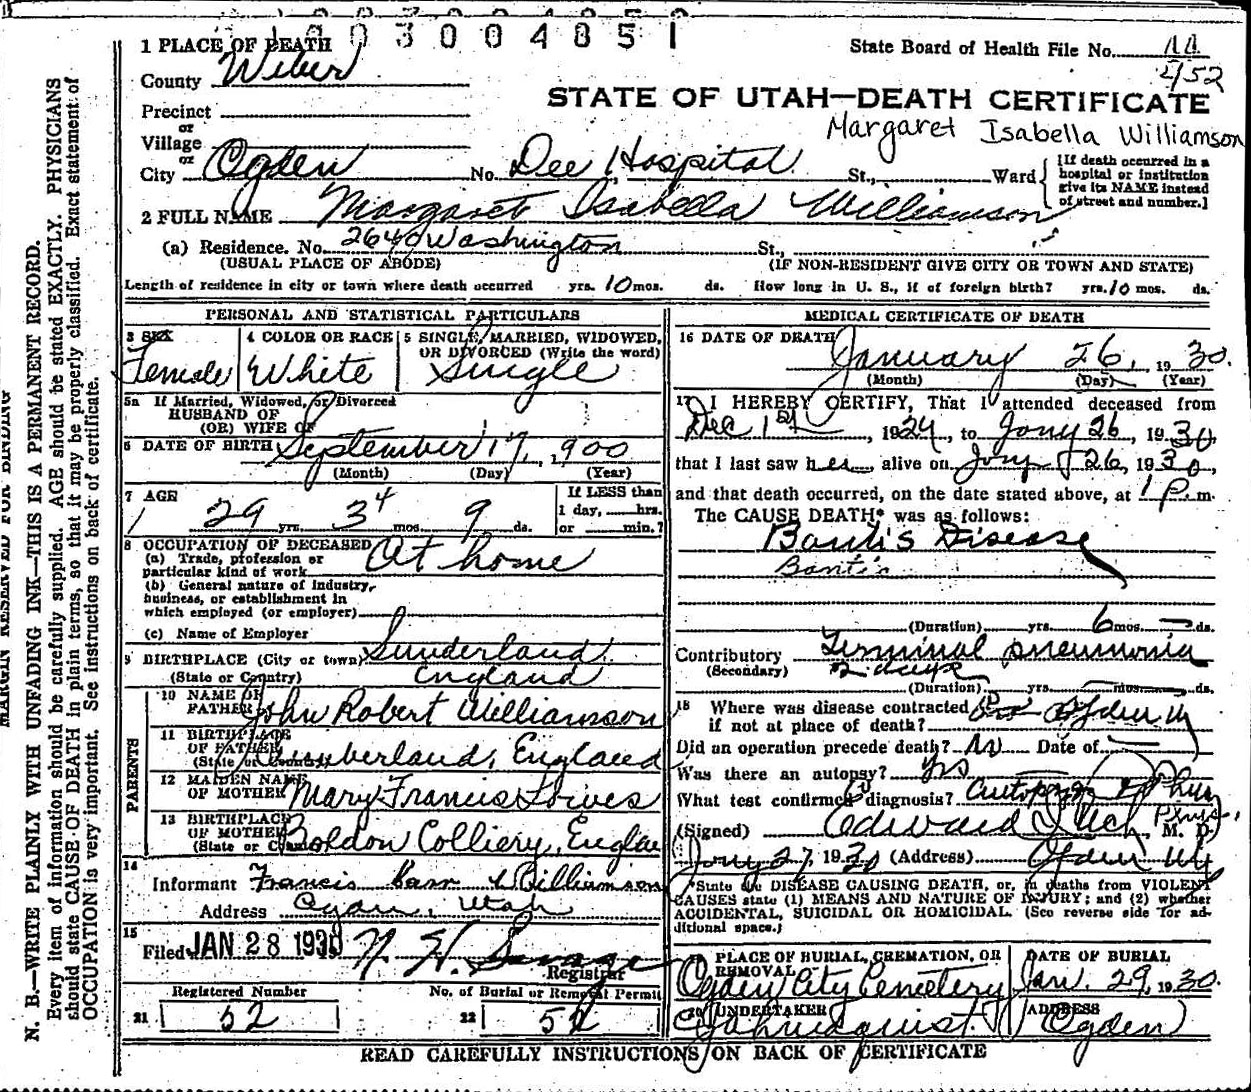 003004851
1 PLACE OF DEATH
State Board of Health File No. 11
452
County Weber
STATE OF UTAH—DEATH CERTIFICATE
Margaret Isabella Williamson
Precinct
or
Village
or
City Ogden No. Dee Hospital St., Ward
[If death occurred in a hospital or institution give its NAME instead of street and number.]
2 FULL NAME Margaret Isabella Williamson
(a) Residence. No. 2640 Washington St.,
(USUAL PLACE OF ABODE) (IF NON-RESIDENT GIVE CITY OR TOWN AND STATE)
Length of residence in city or town where death occurred yrs. 10 mos. ds. How long in U. S., if of foreign birth? yrs. 10 mos. ds.
PERSONAL AND STATISTICAL PARTICULARS
3 SEX Female
4 COLOR OR RACE White
5 SINGLE, MARRIED, WIDOWED, OR DIVORCED (Write the word) Single
5a If Married, Widowed, or Divorced
HUSBAND OF
(OR) WIFE OF
6 DATE OF BIRTH September 17, 1900
(Month) (Day) (Year)
7 AGE 29 yrs. 3 4 mos. 9 ds.
If LESS than 1 day, hrs. or min.?
8 OCCUPATION OF DECEASED At home
(a) Trade, profession or particular kind of work
(b) General nature of industry, business, or establishment in which employed (or employer)
(c) Name of Employer
9 BIRTHPLACE (City or town) Sunderland
(State or Country) England
PARENTS
10 NAME OF FATHER John Robert Williamson
11 BIRTHPLACE OF FATHER (State or Country) Cumberland, England
12 MAIDEN NAME OF MOTHER Mary Francis
13 BIRTHPLACE OF MOTHER (State or Country) Boldon Colliery, Englan
14 Informant Francis Carr Williamson
Address Ogden, Utah
15 Filed JAN 28 1930
Registrar
Registered Number No. of Burial or Removal Permit
21 52 22 52
MEDICAL CERTIFICATE OF DEATH
16 DATE OF DEATH January 26, 1930.
(Month) (Day) (Year)
17 I HEREBY CERTIFY, That I attended deceased from
Dec 1st, 1929, to Jany 26, 1930,
that I last saw her alive on Jany 26, 1930,
and that death occurred, on the date stated above, at 1 P. m.
The CAUSE DEATH* was as follows:
Banti's Disease
Bantis
(Duration) yrs. 6 mos. ds.
Contributory Terminal pneumonia
(Secondary) 2 days
(Duration) yrs. mos. ds.
18 Where was disease contracted
if not at place of death? Ogden
Did an operation precede death? No Date of
Was there an autopsy? Yes
What test confirmed diagnosis? Autopsy
(Signed) Edward M. D.
Jany 27, 1930 (Address) Ogden Ut
*State the DISEASE CAUSING DEATH, or, in deaths from VIOLENT
CAUSES state (1) MEANS AND NATURE OF INJURY; and (2) whether
ACCIDENTAL, SUICIDAL OR HOMICIDAL. (See reverse side for additional space.)
PLACE OF BURIAL, CREMATION, OR REMOVAL Ogden City Cemetery
DATE OF BURIAL Jan. 29, 1930.
20 UNDERTAKER
ADDRESS Ogden
READ CAREFULLY INSTRUCTIONS ON BACK OF CERTIFICATE
MARGIN RESERVED FOR BINDING
N. B.—WRITE PLAINLY WITH UNFADING INK—THIS IS A PERMANENT RECORD.
Every item of information should be carefully supplied. AGE should be stated EXACTLY. PHYSICIANS
should state CAUSE OF DEATH in plain terms, so that it may be properly classified. Exact statement of
OCCUPATION is very important. See instructions on back of certificate.